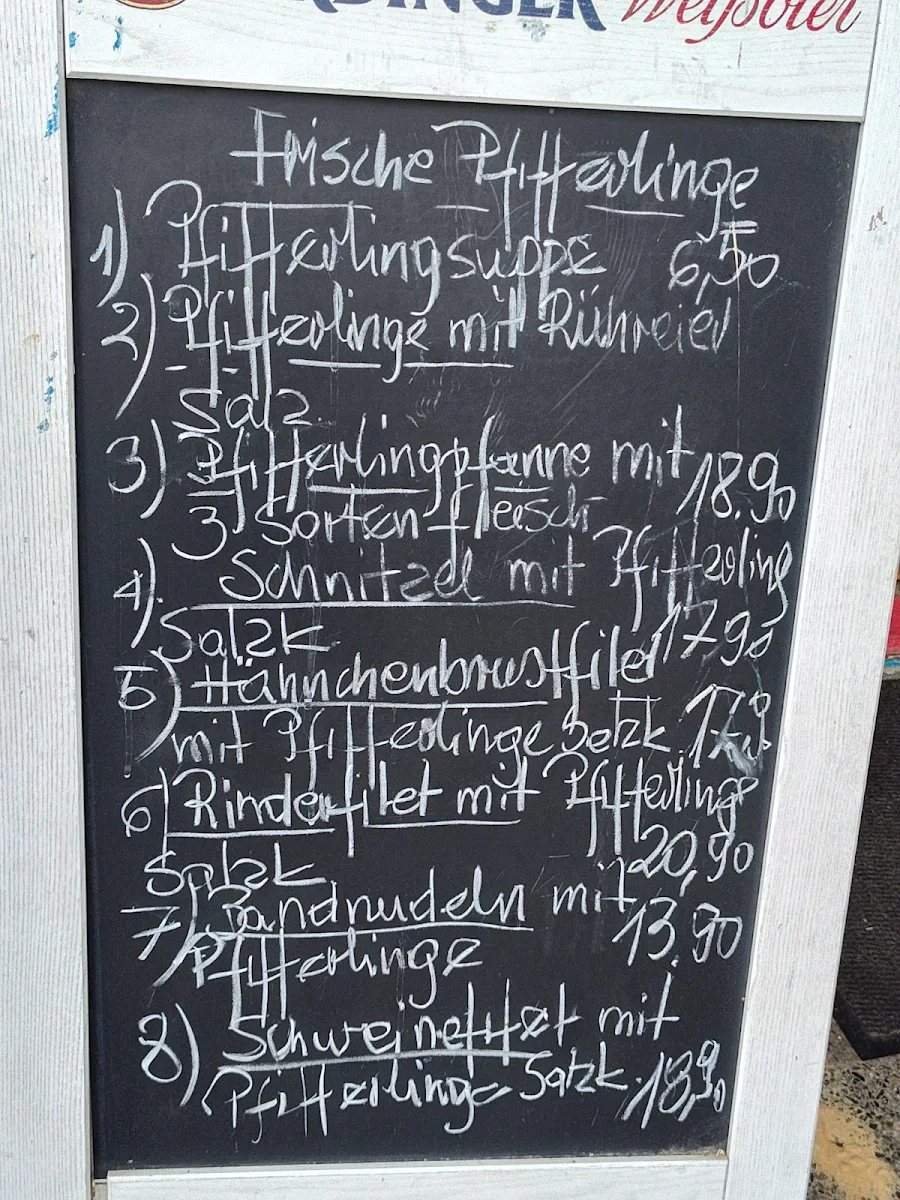 ERDINGER Weißbier
Frische Pfifferlinge
1) Pfifferlingsuppe 6,50
2) Pfifferlinge mit Rühreier
Salz
3) Pfifferlingpfanne mit 18.90
3 Sorten Fleisch
4) Schnitzel mit Pfifferling
Salzk 17,90
5) Hähnchenbrustfilet
mit Pfifferlinge Satzk. 17,9
6) Rinderfilet mit Pfifferlinge
Salzk 20,90
7) Bandnudeln mit 13.90
Pfifferlinge
8) Schweinefilet mit
Pfifferlinge Satzk. 18,90